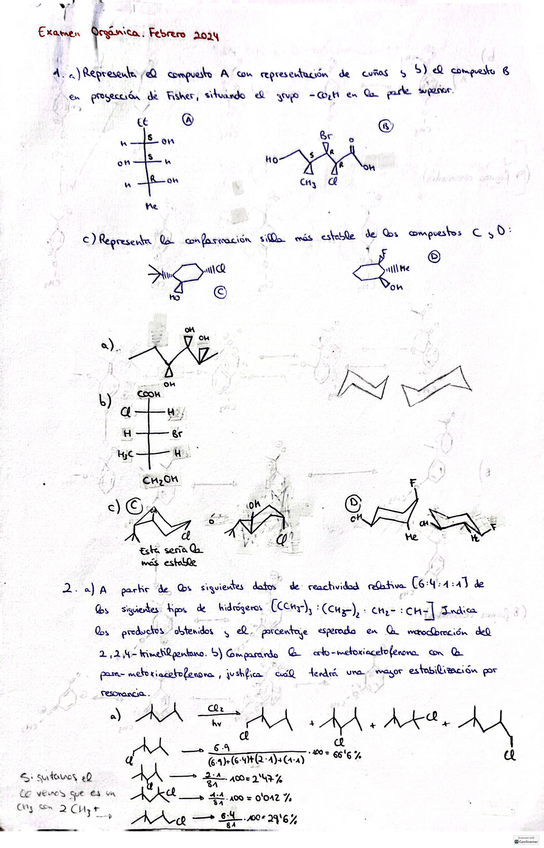 Examen Orgánica. Febrero 2024
1. a) Representa el compuesto A con representación de cuñas y b) el compuesto B
en proyección de Fisher, situando el grupo -CO2H en la parte superior.
Et
A
H S OH
OH S H
H R OH
Me
B
Br
O
HO S R R OH
CH3 Cl
c) Representa la conformación silla más estable de los compuestos C y D:
Cl
HO
C
F
Me
OH
D
a)
OH
OH
OH
b)
COOH
Cl H
H Br
H3C H
CH2OH
c) C
Cl
Está sería la
más estable
o
OH
Cl
D
F
OH
Me
OH
F
Me
2. a) A partir de los siguientes datos de reactividad relativa [6:4:1:1] de
los siguientes tipos de hidrógenos [(CH3-)3:(CH3-)2:CH2-:CH-] Indica
los productos obtenidos y el porcentaje esperado en la monocloración del
2,2,4-trimetilpentano. b) Comparando la orto-metoxiacetofenona con la
para-metoxiacetofenona, justifica cuál tendrá una mayor estabilización por
resonancia.
a)
Cl2
hv
Cl + Cl + Cl + Cl
Cl 6·9 / (6·9)+(6·4)+(2·1)+(1·1) ·100 = 66'6%
Cl 2·1 / 81 ·100 = 2'47%
Cl 1·1 / 81 ·100 = 0'012%
Cl 6·4 / 81 ·100 = 29'6%
Si quitamos el
Cl vemos que es un
CH3 con 2 CH3
CamScanner